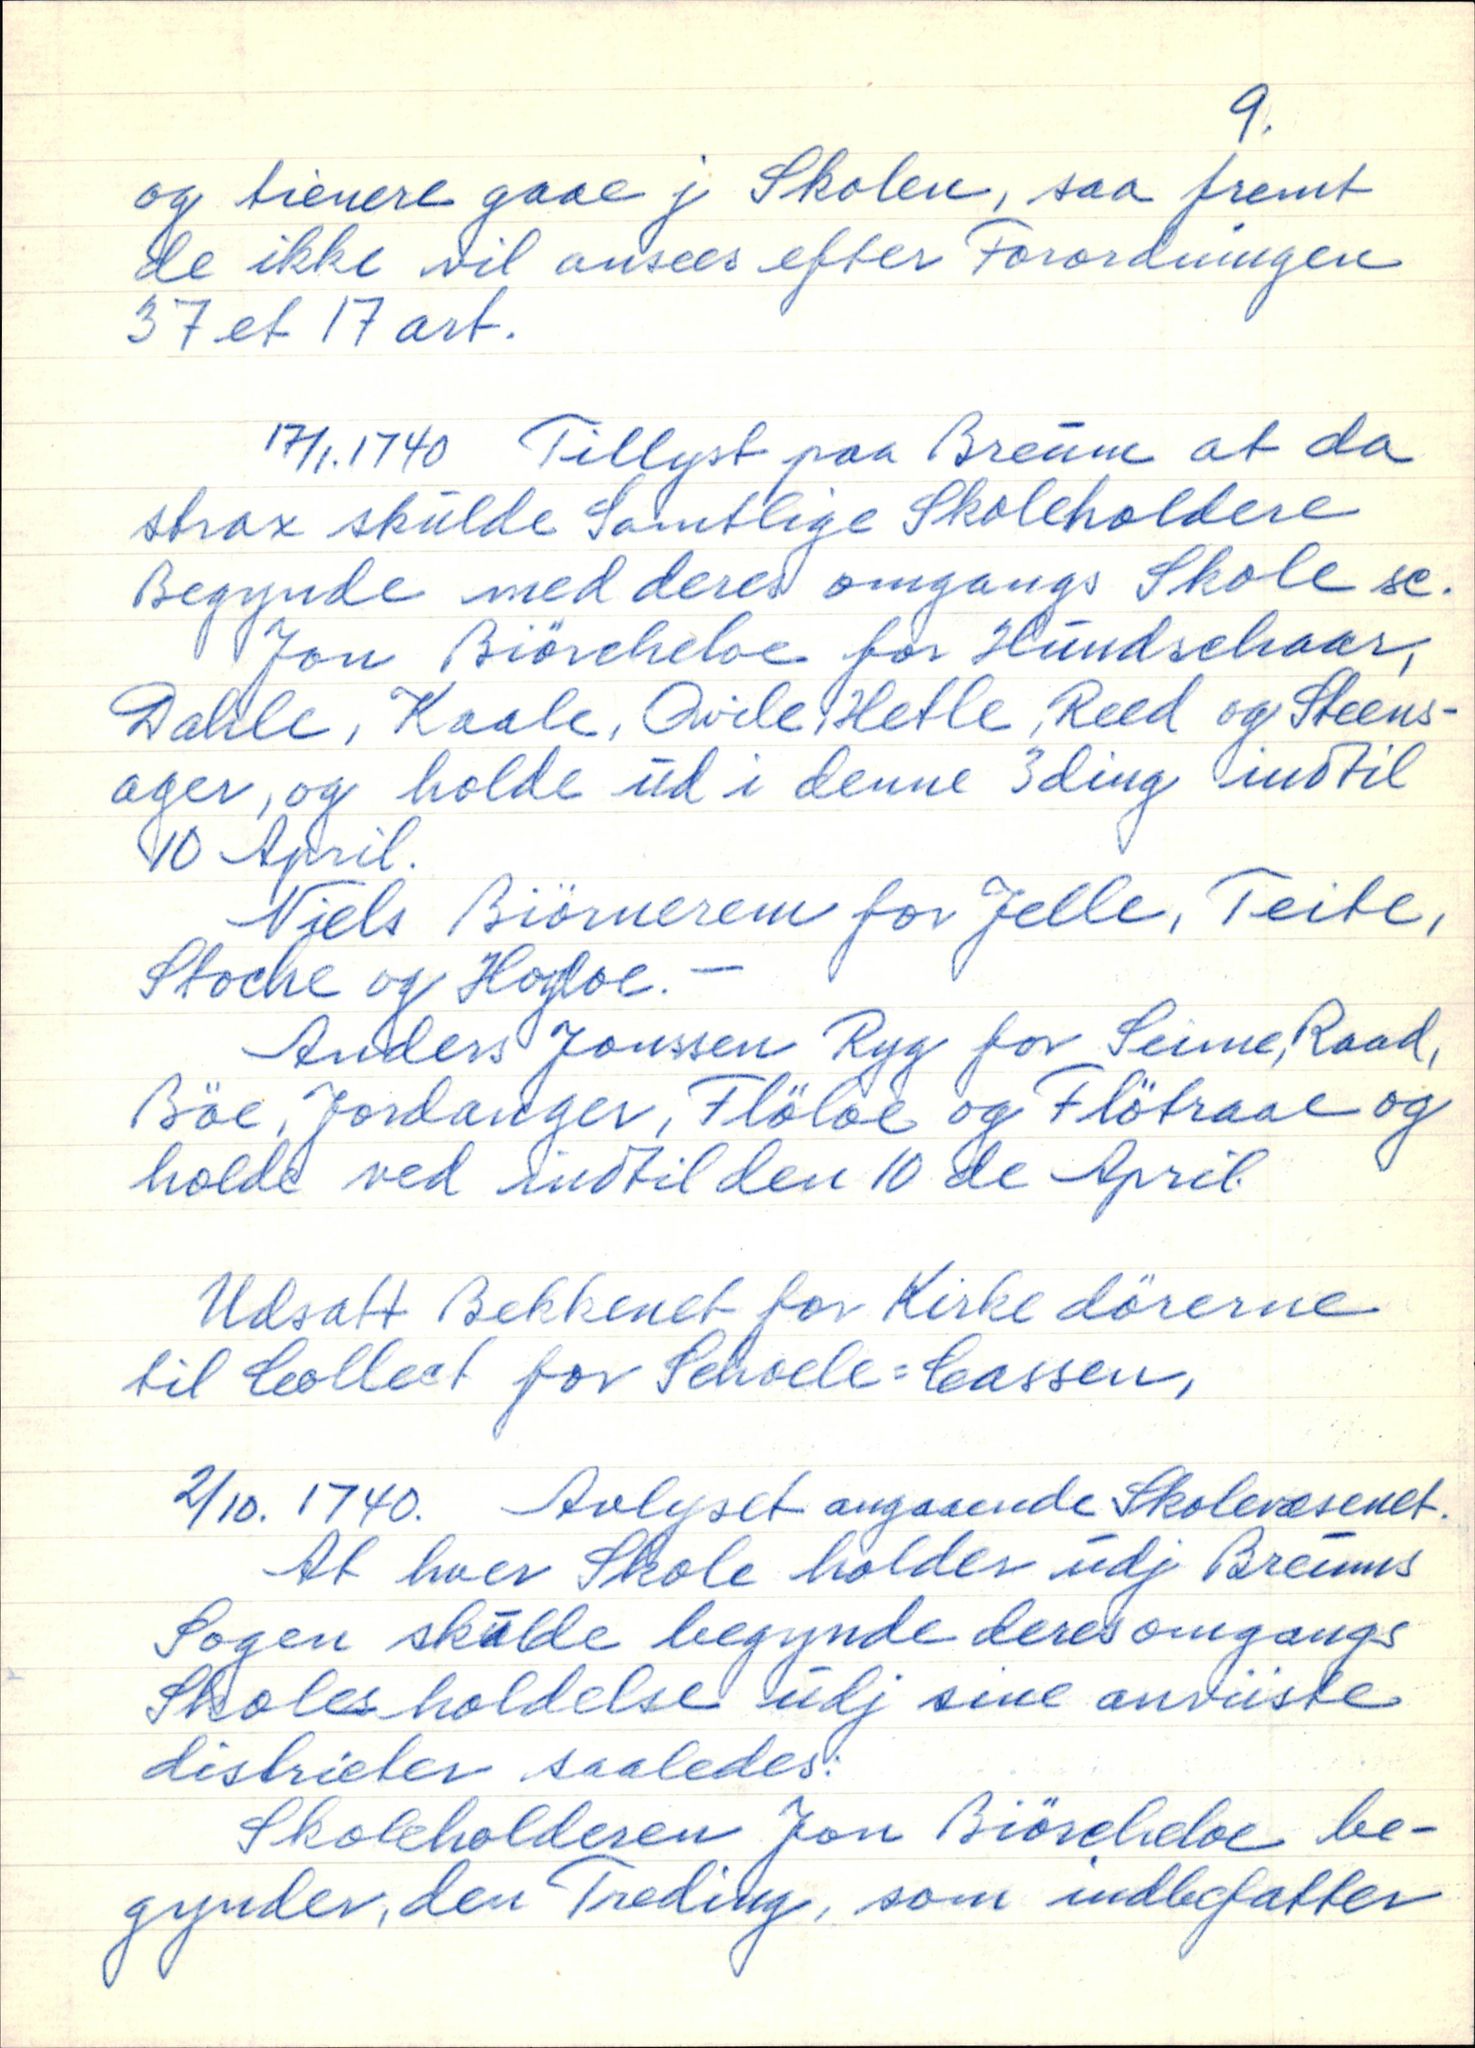 9.
og tienere gaae j Skolen, saa fremt
de ikke vil ansees efter Forordningen
37 et 17 art.
17/1. 1740 Tillyst paa Breūm at da
strax skūlde Samtlige Skoleholdere
Begynde med deres omgangs Skole sc.
Jon Biörcheloe for Hūndschaar,
Dahle, Kaale, Qvile, Hetle, Reed og Steens-
ager, og holde ūd i denne 3ding indtil
10 April.
Niels Biörnerem for Jelle, Teite,
Stoche og Hogloe. —
Anders Jonssen Ryg for Seime, Raad,
Böe, Jordanger, Flöloe og Flötraae og
holde ved indtil den 10 de April.
Udsatt Bekkenet for Kirke dörerne
til Collect for Schoele=Cassen,
2/10. 1740. Avlyset angaaende Skolevæsenet.
At hver Skole holder ūdj Breūms
Sogen skūlde begynde deres omgangs
Skoles holdelse ūdj sine anviiste
districter saaledes:
Skoleholderen Jon Biörcheloe be-
gynder, den Treding, som indbefatter